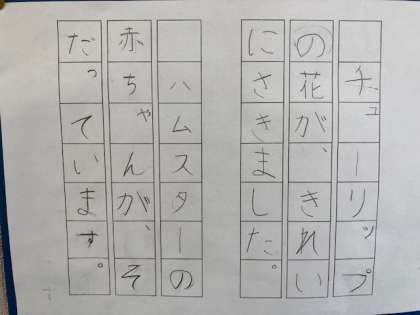 チューリップ
の花が、きれい
にさきました。
ハムスターの
赤ちゃんが、そ
だっています。